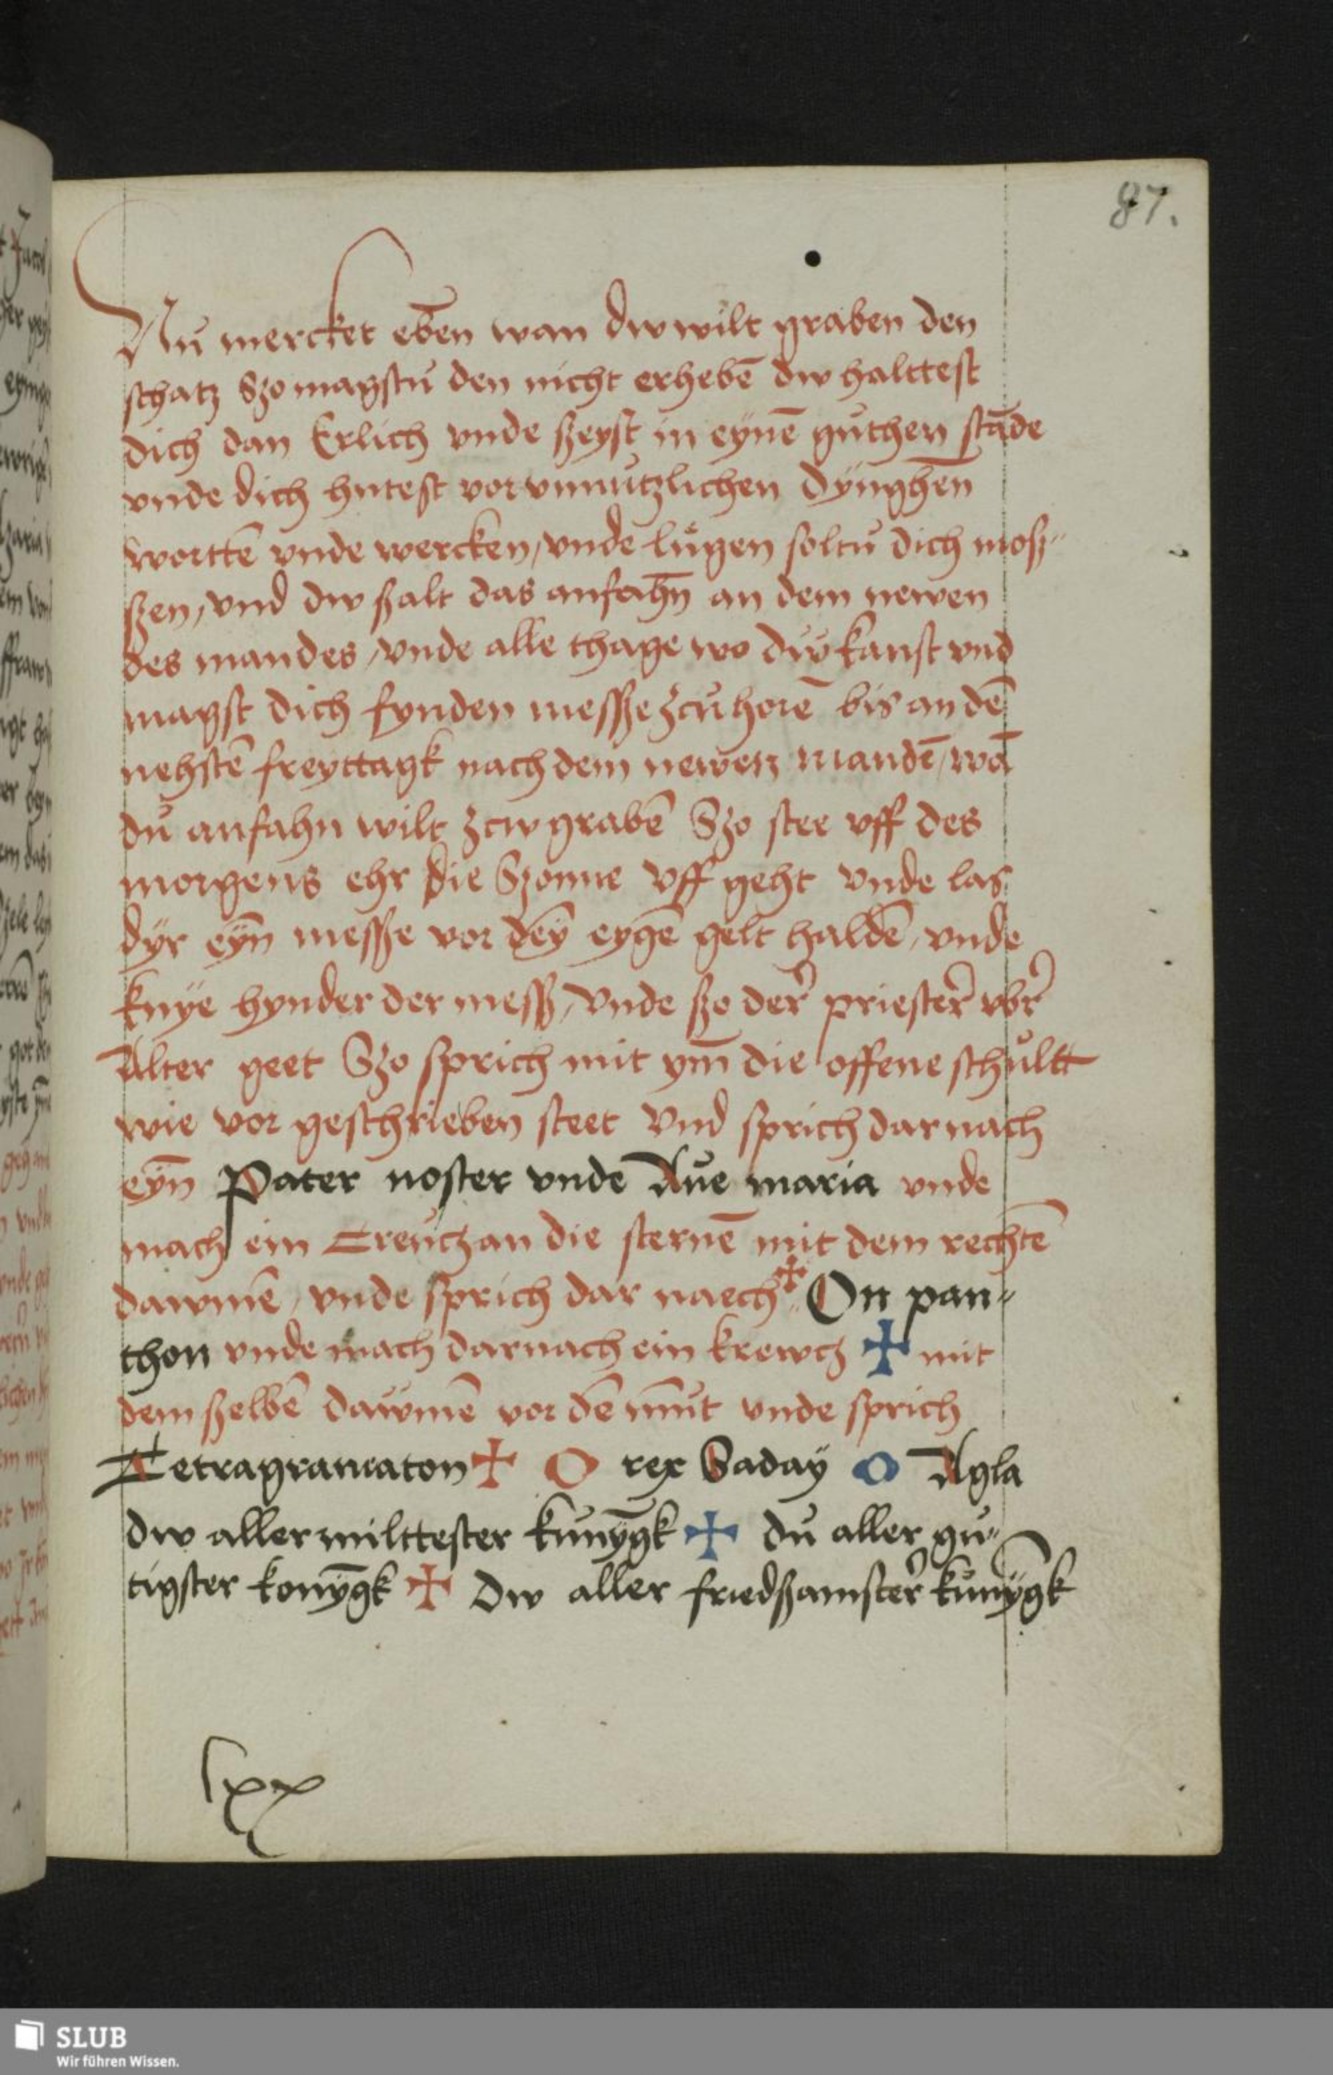 87.
Nu mercket eben wan dw wilt graben den
schatz Szo magstu den nicht erhebē dw halttest
dich dan Erlich vnde ßeyst in eynē guthen stāde
vnde dich hutest vor vnnutzlichen dynghen
wortte vnde wercken, vnde lugen soltu dich moß-
ßen, vnd dw ßalt das anfahn an dem newen
des mandes, vnde alle thage wo dw kanst vnd
magst dich fynden messße zcu horē bis an dē
nehstē freyttagk nach dem newen mandē, wā
du anfahn wilt zcw grabē Szo stee vff des
morgens ehr die Szonne vff geht vnde las
dyr eyn messße vor dey eygē gelt haldē, vnde
knye hynder der messß, vnde ßo der priester vbr
Alter geet Szo sprich mit ym die offene schultt
wie vor geschrieben steet Vnd sprich dar nach
eyn Pater noster vnde Aue maria vnde
mach ein Creutz an die sternē mit dem rechtē
dawmē, vnde sprich dar naech ✠ On pan-
thon vnde mach darnach ein krewtz ✠ mit
dem ßelbē dawmē vor dē mut vnde sprich
Tetragramaton ✠ O rex Saday O Agla
dw aller milttester kunygk ✠ du aller gu-
tigster konygk ✠ Dw aller friedßamster kunygk
lxx
SLUB
Wir führen Wissen.